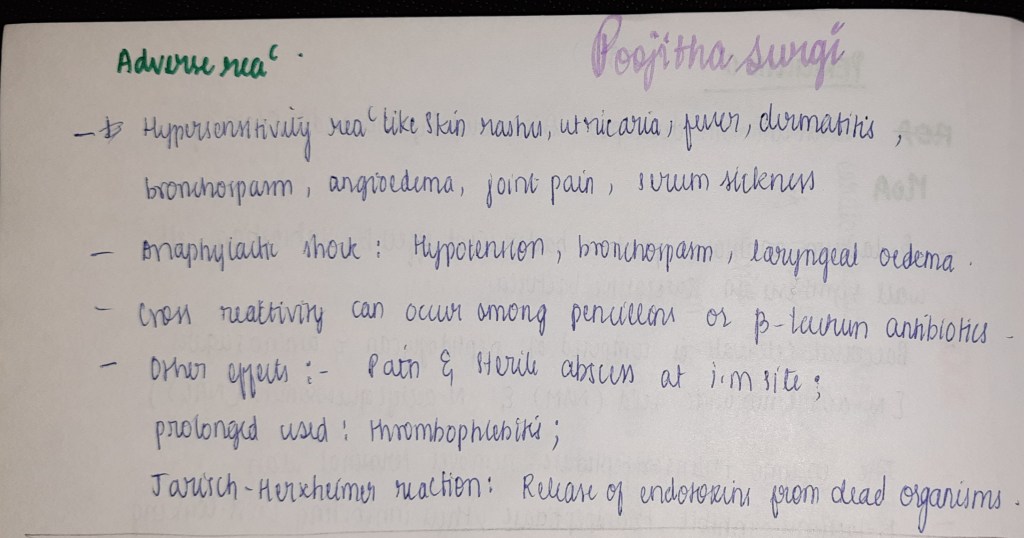 Adverse reaᶜ.
Poojitha surgi
- Hypersensitivity reaᶜ like skin rashes, utricaria, fever, dermatitis,
bronchospasm, angioedema, joint pain, serum sickness
- Anaphylactic shock: Hypotension, bronchospasm, laryngeal oedema.
- Cross reactivity can occur among or β-lactum antibiotics -
- Other effects:- Pain & Sterile abscess at i.m site;
prolonged used: thrombophlebitis;
Jarisch-Herxheimer reaction: Release of endotoxins from dead organisms.